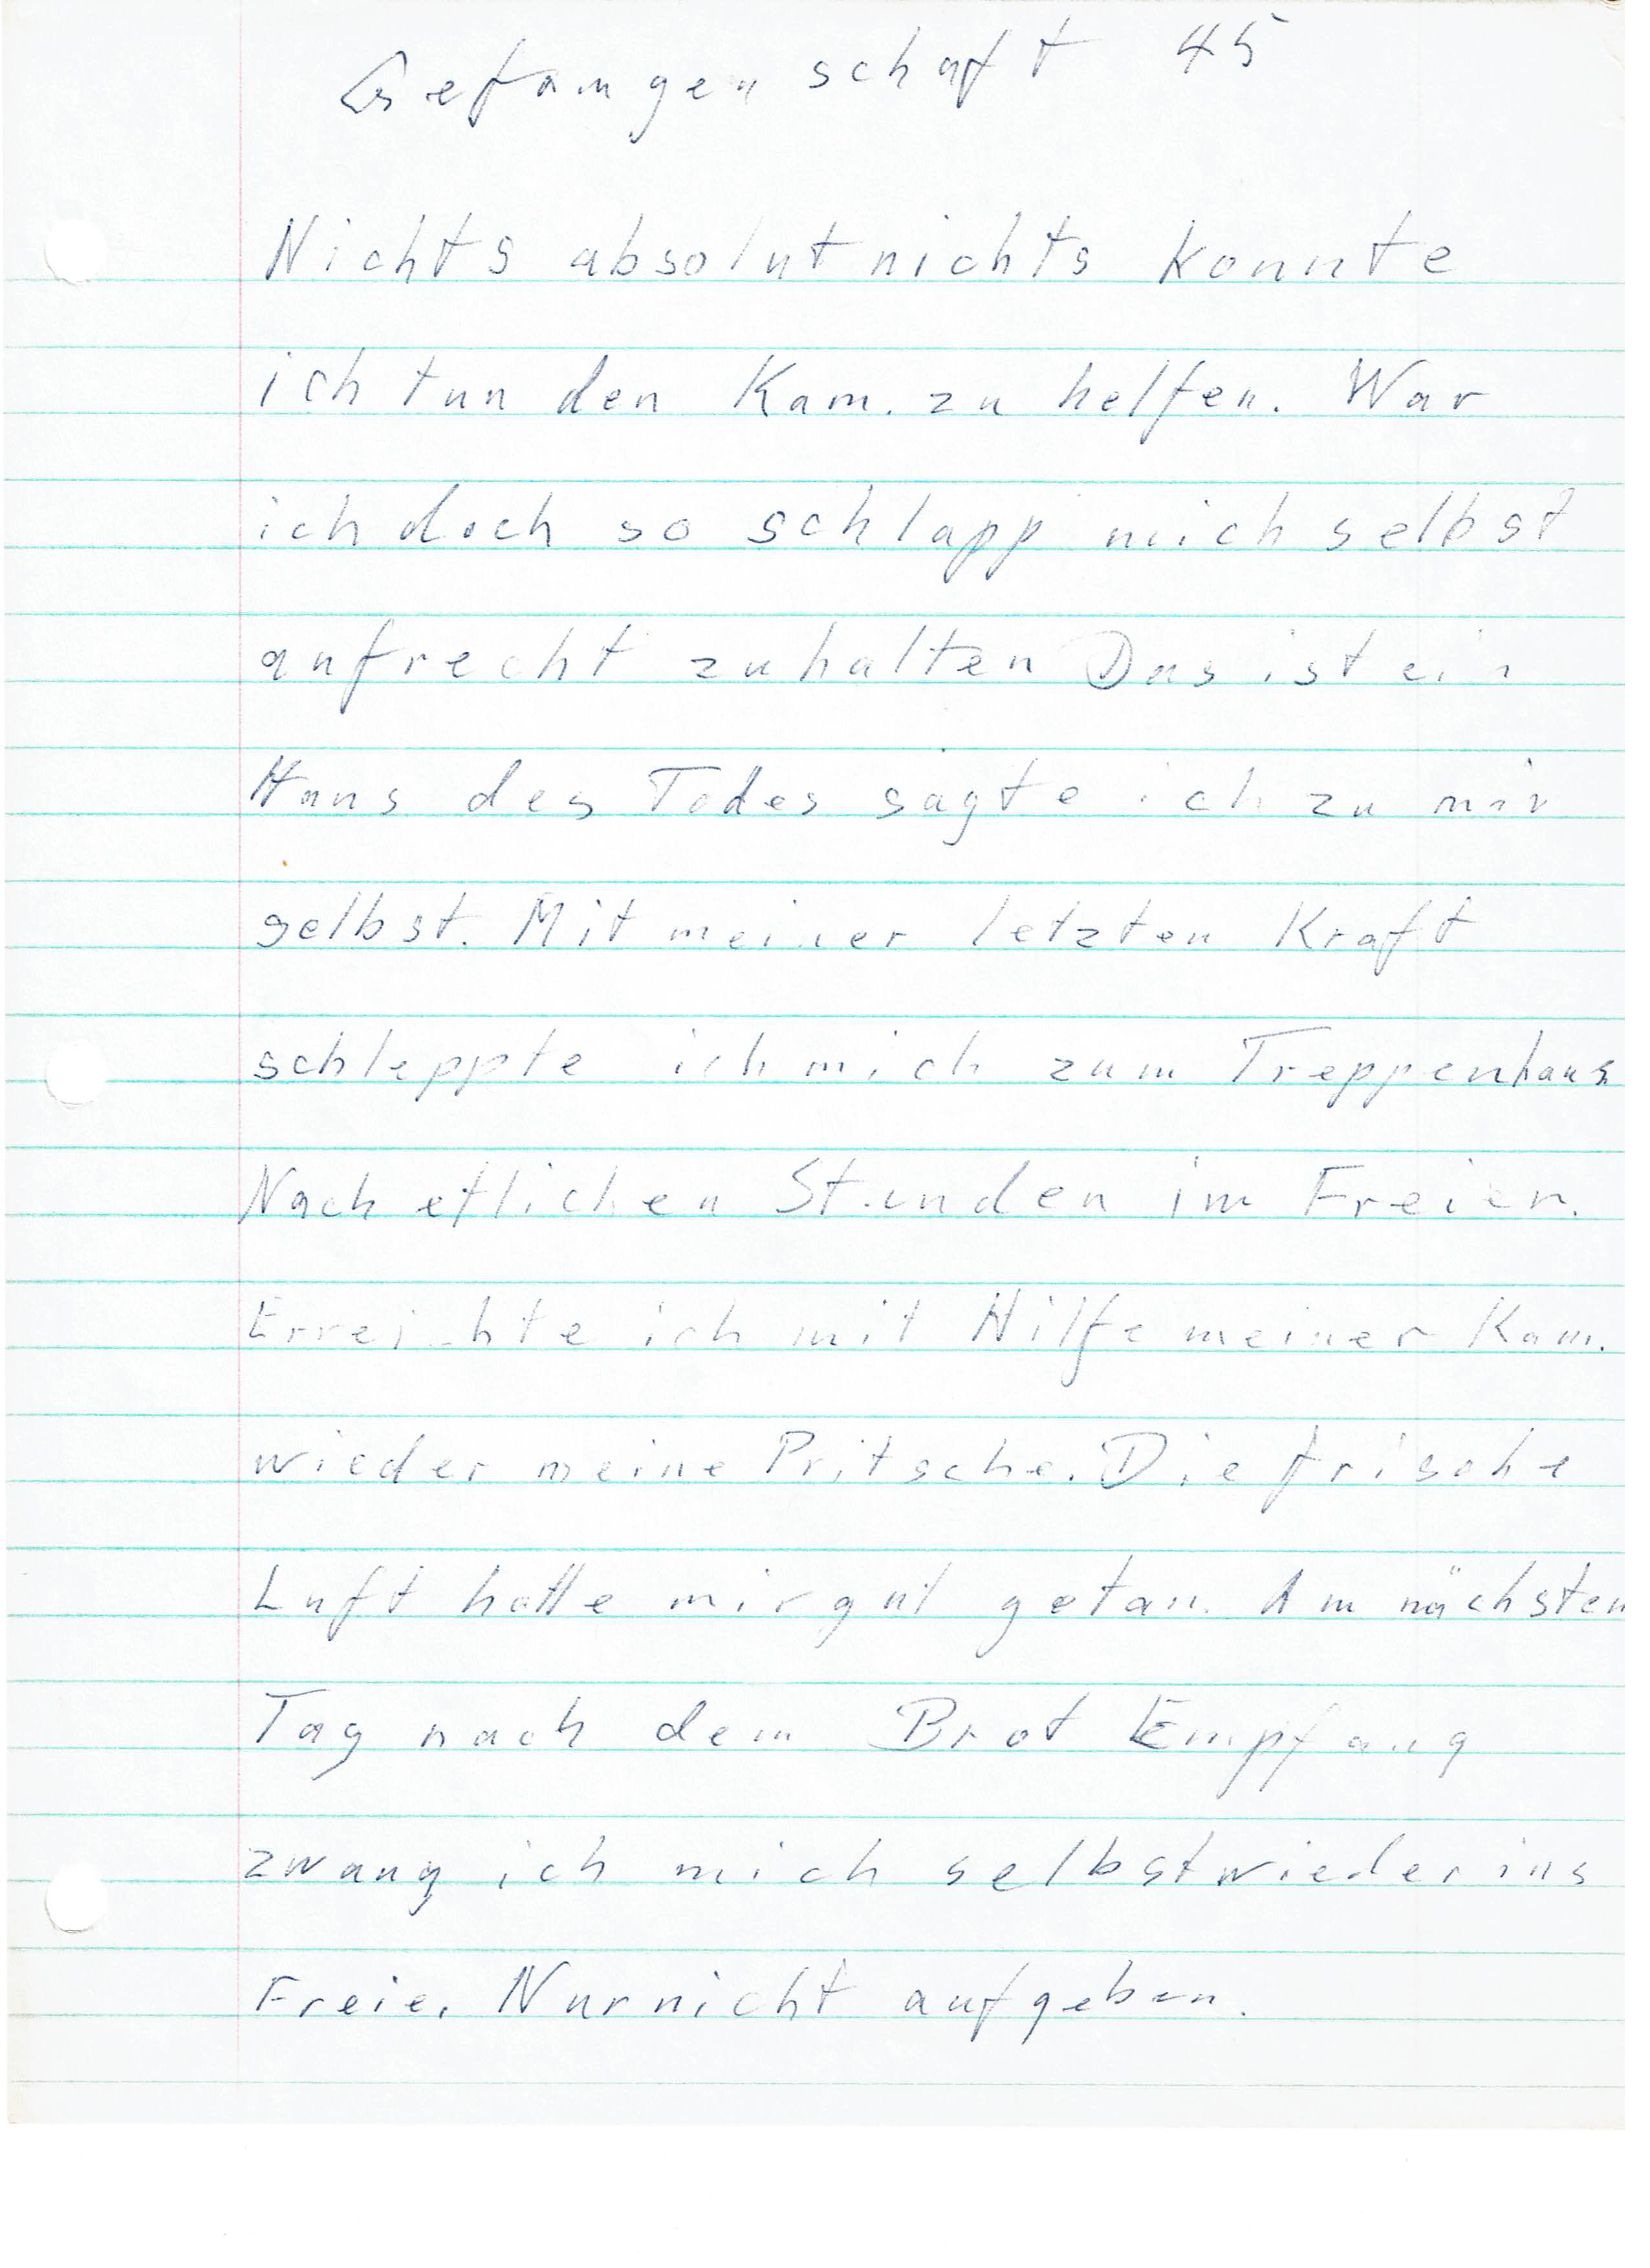 Gefangenschaft 45
Nichts absolut nichts konnte
ich tun den Kam. zu helfen. War
ich doch so schlapp mich selbst
aufrecht zu halten Das ist ein
Haus des Todes sagte ich zu mir
selbst. Mit meiner letzten Kraft
schleppte ich mich zum Treppenhaus
Nach etlichen Stunden im Freien.
Erreichte ich mit Hilfe meiner Kam.
wieder meine Pritsche. Die frische
Luft hatte mir gut getan. Am nächsten
Tag nach dem Brot Empfang
zwang ich mich selbst wieder ins
Freie. Nur nicht aufgeben.